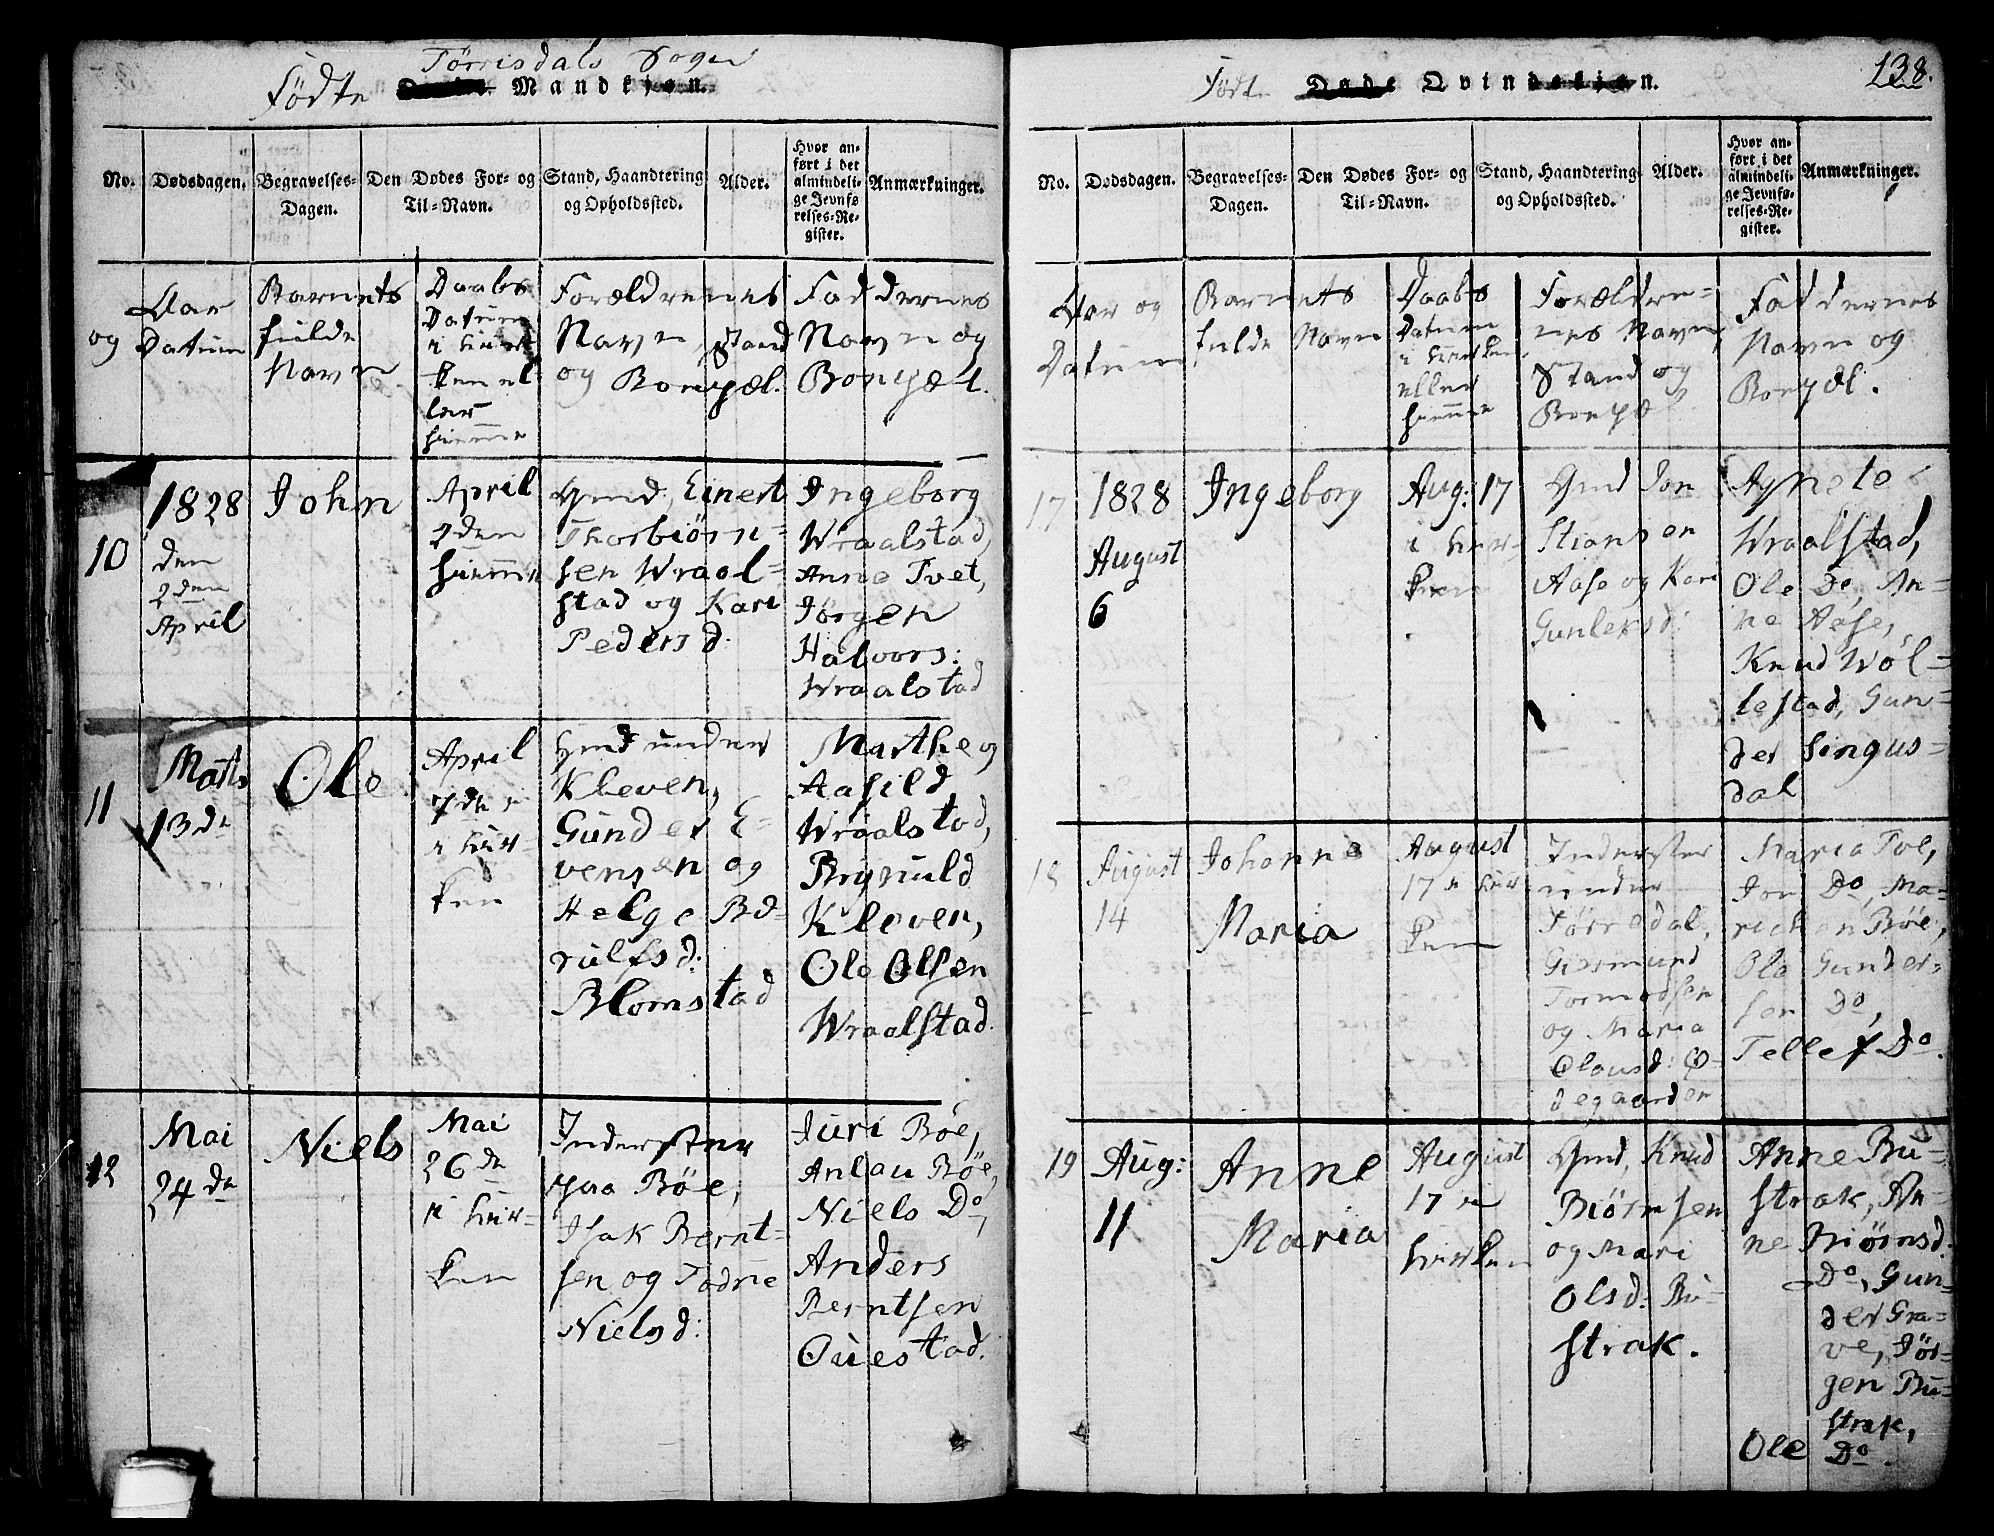 Tørrisdals Sogn
Fødte Døde Mandkjøn.
No.
Dødsdagen.
Begravelses-
Dagen.
Den Dødes For- og
Til-Navn.
Stand, Haandtering
og Opholdssted.
Alder.
Hvor an-
ført i det
almindeli-
ge Jevnfø
relses-Re-
gister.
Anmærkninger.
Aar
og Datum
Barnets
fulde
Navn
Daabs
Datum
i Kirk
ken el-
ler
hiemme
Forældrenes
Navn, Stand
og Bopæl.
Faddernes
Navn og
Bopæl.
10
1828
den
2den
April
John
April
2den
hiemme
Gmd. Einert
Thorbiørn-
sen Wraal-
stad og Kari
Pedersd:
Ingeborg
Wraalstad,
Anne Tvet,
Jørgen
Halvors:
Wraalstad
11
Marts
13de
Ole
April
7de
i Kir-
ken
Hmd under
Kleven,
Gunder E-
vensen og
Helge Be-
rulfsd:
Blomstad
Marthe og
Aasild
Wraalstad,
Brynuld
Kleven,
Ole Olsen
Wraalstad.
12
Mai
24de
Niels
Mai
26de
i Kir-
ken
Inderster
paa Bøe,
Isak Bernt-
sen og Todne
Nielsd:
Juri Bøe,
Anlau Bøe,
Niels Do,
Anders
Berntsen
Ouestad.
138.
Født Døde Qvindekjøn.
No.
Dødsdagen.
Begravelses-
Dagen.
Den Dødes For- og
Til-Navn.
Stand, Haandtering
og Opholdssted.
Alder.
Hvor an-
ført i det
almindeli-
ge Jevnfø-
relses-Re-
gister.
Anmærkninger.
Aar og
Datum
Barnets
fulde Navn
Daabs
Datum
i Kirken
eller
hiemme
Forældre-
nes Navn,
Stand og
Bopæl.
Faddernes
Navn og
Bopæl.
17
1828
August
6
Ingeborg
Aug: 17
i Kir-
ken
Gmd Jon
Stiansen
Aase og Kari
Gunleksd:
Agnete
Wraalstad,
Ole Do, An-
ne Aase,
Knud Wøl-
lestad, Gun-
der Singus-
dal
18
August
14
Johanne
Maria
August
17 i Kir
ken
Inderster
under
Tørredal,
Giermund
Tormodsen
og Maria
Olausd: Ø-
degaarden
Maria Toe,
Jon Do, Ma-
ricken Bøe,
Ole Gunder-
sen Do,
Tellef Do.
19
Aug:
11
Anne
Maria
August
17 i
Kirken
Gmd, Knud
Biørnsen
og Mari
Olsd: Bu-
strak.
Anne Bu-
strak, An-
ne Biørnsd:
Do, Gun-
der Gra-
ve, Jør-
gen Bu-
strak,
Ole Do.